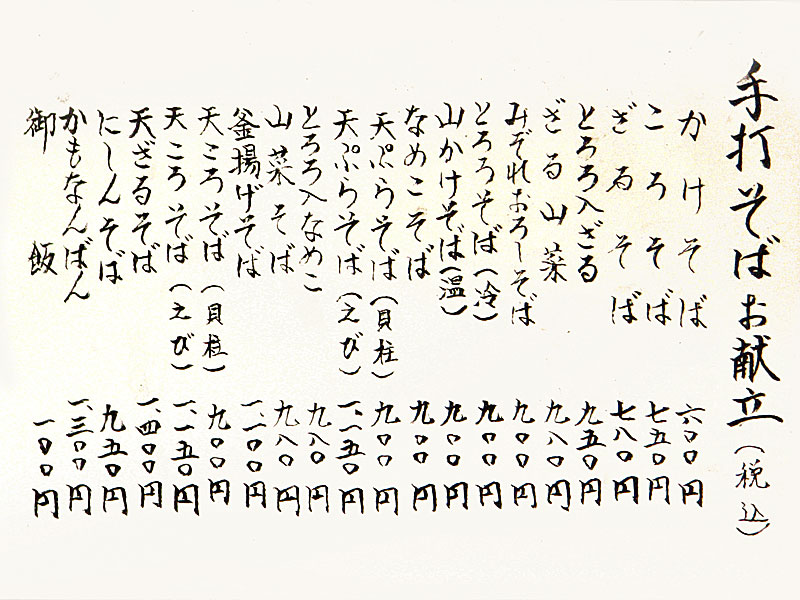 手打そばお献立(税込)
かけそば 六〇〇円
ころそば 七五〇円
ざるそば 七八〇円
とろろ入ざる 九五〇円
ざる山菜 九八〇円
みぞれおろしそば 九〇〇円
とろろそば(冷) 九〇〇円
山かけそば(温) 九〇〇円
なめこそば 九〇〇円
天ぷらそば(貝柱) 九〇〇円
天ぷらそば(えび) 一、一五〇円
とろろ入なめこ 九八〇円
山菜そば 九八〇円
釜揚げそば 一、一〇〇円
天ころそば(貝柱) 九〇〇円
天ころそば(えび) 一、一五〇円
天ざるそば 一、四〇〇円
にしんそば 九五〇円
かもなんばん 一、三〇〇円
御飯 一〇〇円